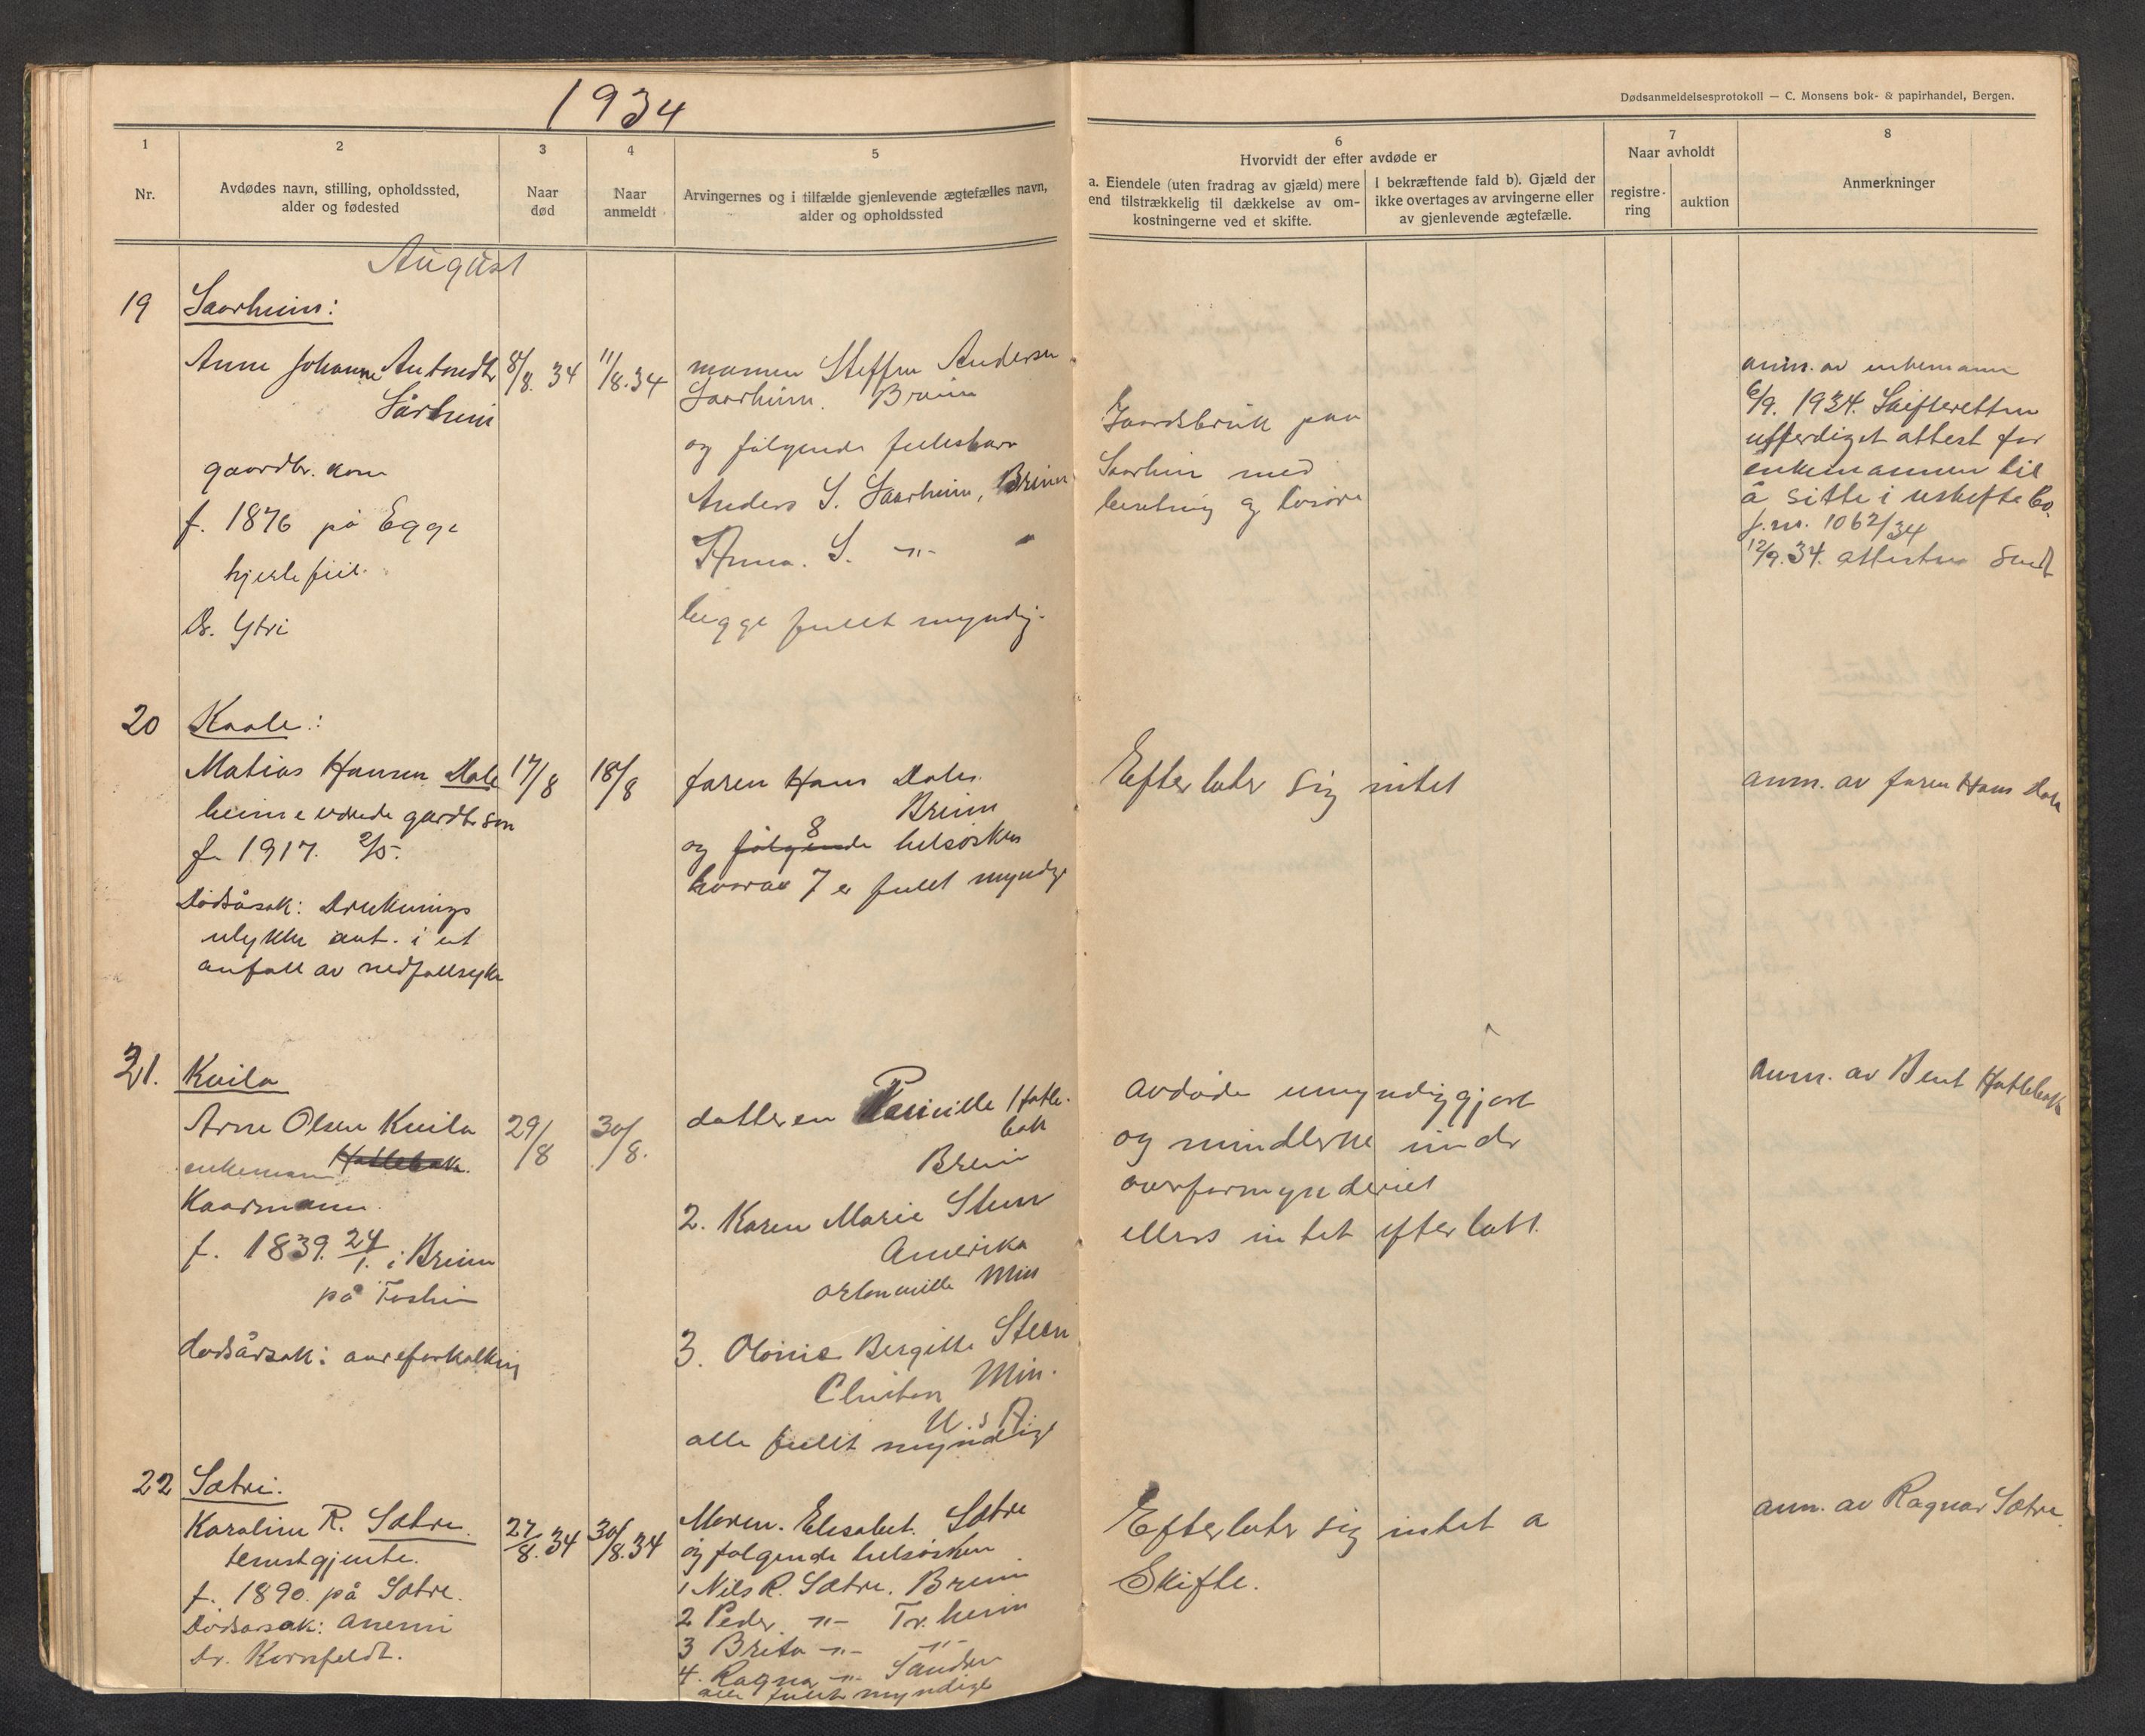 1934
Dødsanmeldelsesprotokoll — C. Monsens bok- & papirhandel, Bergen.
1
Nr.
2
Avdødes navn, stilling, opholdssted,
alder og fødested
3
Naar
død
4
Naar
anmeldt
5
Arvingernes og i tilfælde gjenlevende ægtefælles navn,
alder og opholdssted
6
Hvorvidt der efter avdøde er
a. Eiendele (uten fradrag av gjæld) mere
end tilstrækkelig til dækkelse av om-
kostningerne ved et skifte.
I bekræftende fald b). Gjæld der
ikke overtages av arvingerne eller
av gjenlevende ægtefælle.
7
Naar avholdt
registre-
ring
auktion
8
Anmerkninger
August
19
Saarheim:
Anne Johanne Antonsdtr
Sårheim
gaardbr. kone
f. 1876 på Egge
hjertefeil.
Dr. Ytri
8/8. 34
11/8.34
mannen Steffen Andersen
Saarheim. Breim
og følgende fellesbarn
Anders S. Saarheim, Breim
Anna. S. -"-
begge fullt myndig.
Gaardsbruk paa
Saarheim med
besetning og løsøre
anm. av enkemann
6/9. 1934. Skifteretten
utferdiget attest for
enkemannen til
å sitte i uskifte bo.
j.nr. 1062/34
12/9.34. attesten sendt
20
Kaale:
Matias Hansen Dale
heimeværende gardbr søn
f. 1917. 2/5.
Dødsårsak: Druknings
ulykke ant. i et
anfall av nedfallsyke
17/8
18/8
faren Hans Dale.
Breim
og følgende 8 helsøsken
hvorav 7 er fullt myndige
Efterlater sig intet
anm. av faren Hans Dale
21.
Kvila
Arne Olsen Kvila
enkemann Hattebak.
Kaarmann.
f. 1839. 24/1. i Breim
på Toshei
dødsårsak: aareforkalkning
29/8
30/8.
datteren Pernille Hatle-
bak
Breim
2. Karen Marie Steen
Amerika
Ortonville Min
3. Olonie Bergitte Steen
Clinton Min.
U.S A.
alle fullt myndige
Avdøde umyndiggjort
og midlerne under
overformynderiet
ellers intet efterlatt.
anm. av Bent Hatlebak
22
Sætri.
Karoline R. Sætre.
tenestgjente.
f. 1890. på Sætre.
Dødsårsak: Anemi
Dr. Kornfeldt.
27/8. 34
30/8.34
Moren. Elisabet. Sætre
og følgende helsøsken
1 Nils R. Sætre. Breim
2 Peder -"- Tr.heim
3 Brita -"- -"-
4. Ragna -"- Sanden
alle fullt myndige
Efterlater sig intet a
Skifte.
anm. av Ragnar Sætre.